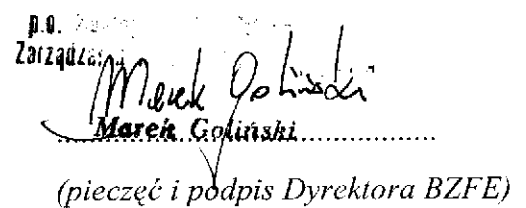 p.o.
Marek Goliński
Marek Goliński
(pieczęć i podpis Dyrektora BZFE)